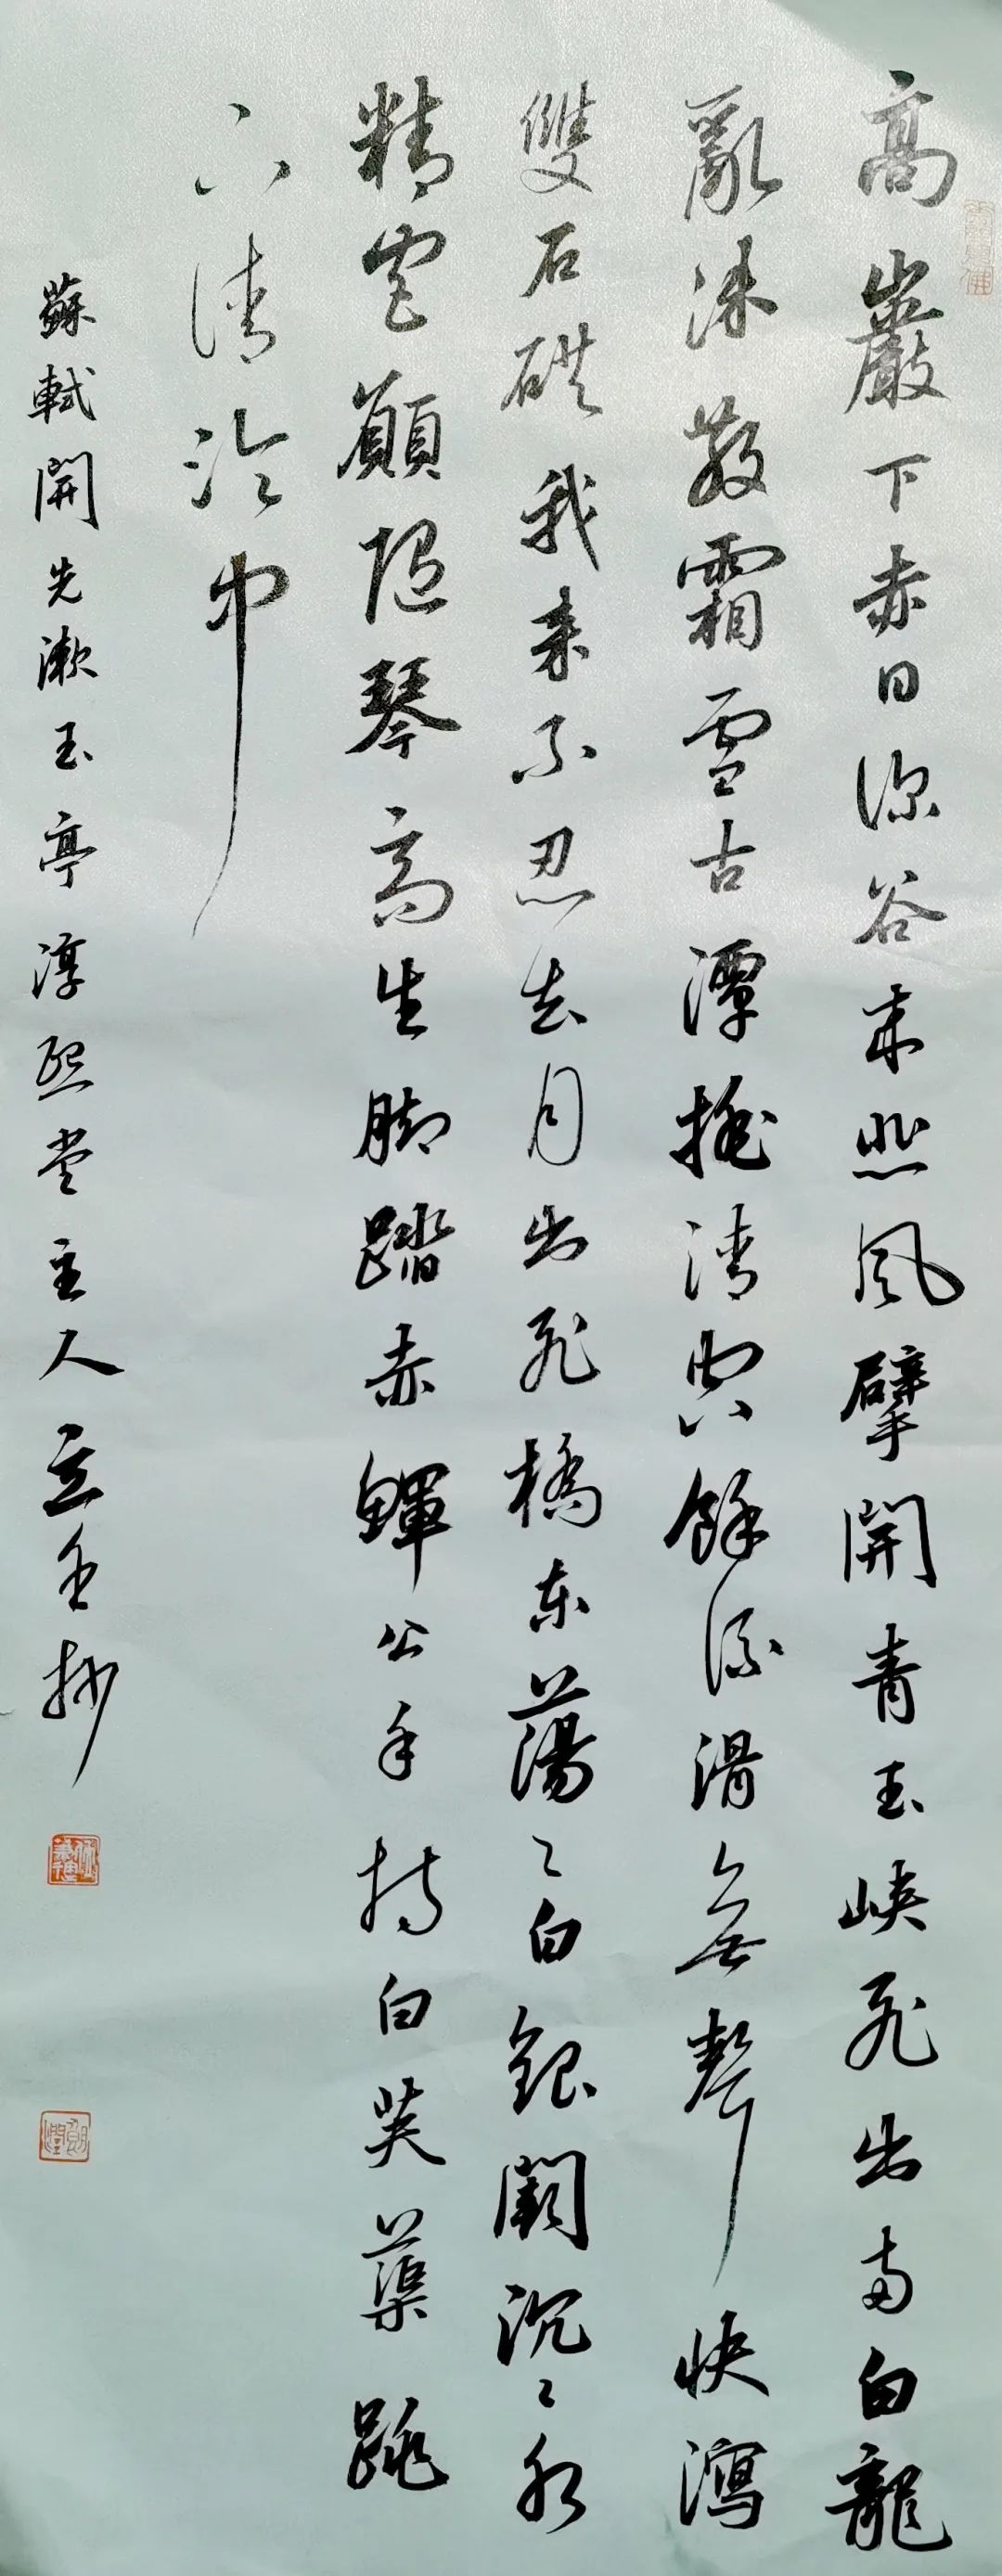 高巖下赤日深谷来悲風擘開青玉峽飛出兩白龍
亂沫散霜雪古潭搖清空餘流滑無聲快瀉
雙石硔我来不忍去月出飛橋東蕩〻白銀闕沉〻水
精宮願随琴高生脚踏赤鯶公手持白芙蕖跳
下清泠中
蘇軾開先漱玉亭淳熙堂主人抄